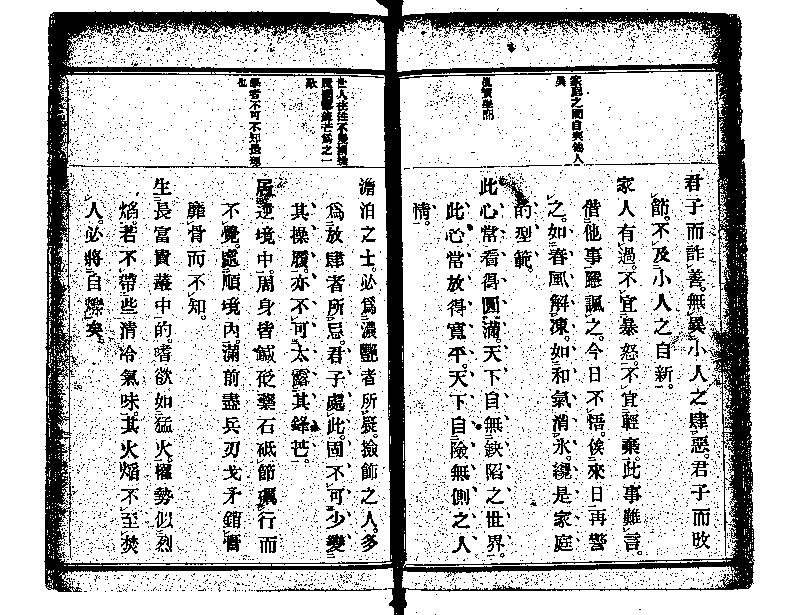 君子而詐善。無異小人之肆惡。君子而改
節。不及小人之自新。
家人有過。不宜暴怒。不宜輕棄。此事難言。
借他事隱諷之。今日不悟。俟來日再警
之。如春風解凍。如和氣消氷。纔是家庭
的型範。
此心常看得圓滿。天下自無缺陷之世界。
此心常放得寬平。天下自無險側之人
情。
澹泊之士。必爲濃艷者所疑。撿飾之人。多
爲放肆者所忌。君子處此。固不可少變
其操履。亦不可太露其鋒芒。
居逆境中。周身皆鍼砭藥石。砥節礪行而
不覺。處順境內。滿前盡兵刃戈矛。銷膏
靡骨而不知。
生長富貴叢中的。嗜欲如猛火。權勢似烈
焰。若不帶些清冷氣味。其火焰不至焚
人。必將自爍矣。